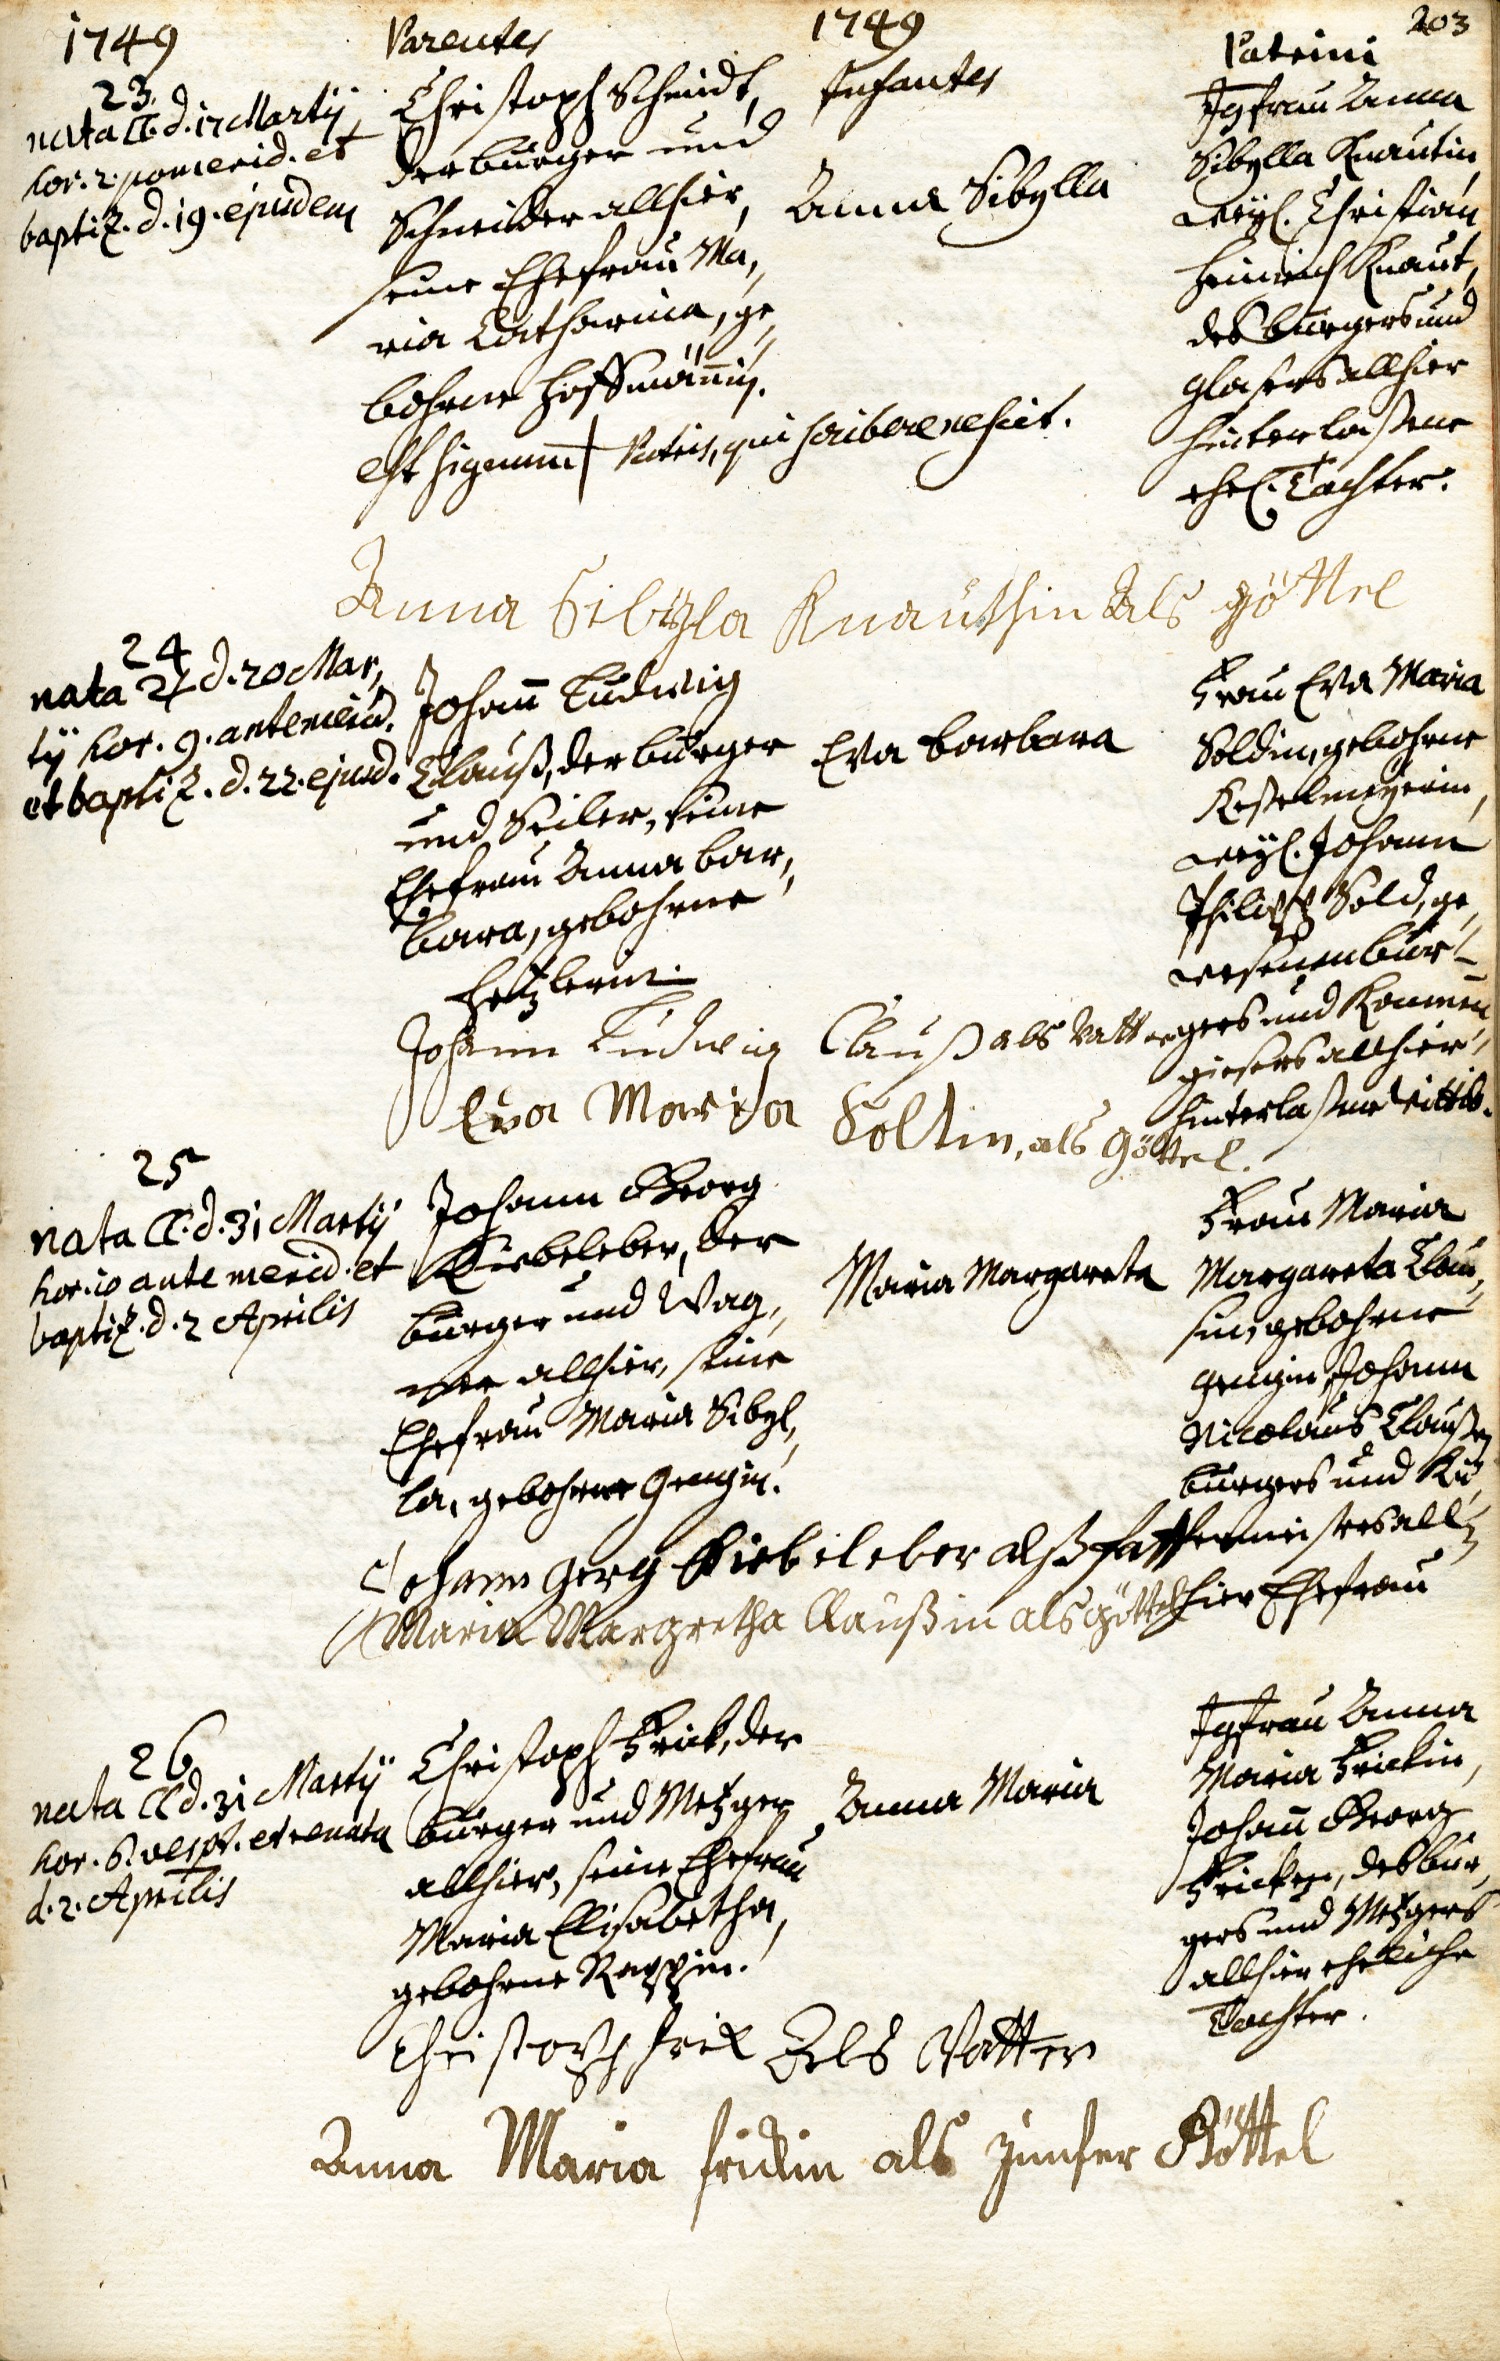 1749 Parentes 1749 203
Infantes Patrini
23.
nata ☾. d. 17 Martij,
hor. 2. pomerid. et
baptiz. d. 19. ejusdem
Christoph Schmidt,
der burger und
Schneider allhier,
seine Ehefrau Ma,,
ria Catharina, ge,,
bohrne Hoffmännin.
est signum + Patris, qui scribere nescit.
Anna Sibylla
Jgfrau Anna
Sibylla Knautin,
weyl. Christian
Heinrich Knaut,
des burgers und
Glasers allhier
hinterlaßene
ehel. Tochter.
Anna Sibÿla Knauthin Als göttel
24
nata ♃ d. 20 Mar,,
tÿ hor. 9. antemerid.
et baptiz. d. 22. ejusd.
Johañ Ludwig
Clauß, der burger
und Seiler, seine
Ehefrau Anna bar,,
bara, gebohrne
Hetzlerin.
Eva barbara
Frau Eva Maria
Soldin, gebohrne
Keßelmeyerin,
weyl. Johann
Philipp Sold, ge,,
wesenen bur,,
gers und Kannen
giesers allhier
hinterlaßene Wittib.
Johann Ludwig Clauß als Vatter
Eva Marija Soltin, als göttel.
25
nata ☾. d. 31 Martÿ
hor. 10 ante merid. et
baptiz. d. 2 Aprilis
Johann Georg
Kirbeleber, der
burger und Wag,,
ner allhier, seine
Ehefrau Maria Sibyl,,
la, gebohrne
Maria Margareta
Frau Maria
Margareta Clau,,
sin, gebohrne
Johann
Nicolaus Claußen
burgers und Kü,,
fermeisters all,,
hier Ehefrau
Johann Gerg Kirbeleber alß fatter
Maria Margretha Claußin als göttel
26
nata ☾ d. 31 Martÿ
hor. 6. vesp. et renata
d. 2. Aprilis
Christoph Frick, der
burger und Metzger
allhier, seine Ehefrau
Maria Elisabetha,
gebohrne Rappin.
Anna Maria
Jgfrau Anna
Maria Frickin,
Johañ Georg
Fricken, des bur,,
gers und Metzgers
allhier eheliche
Tochter.
Christoph frik Als Vatter
Anna Maria frickin als junfer Göttel